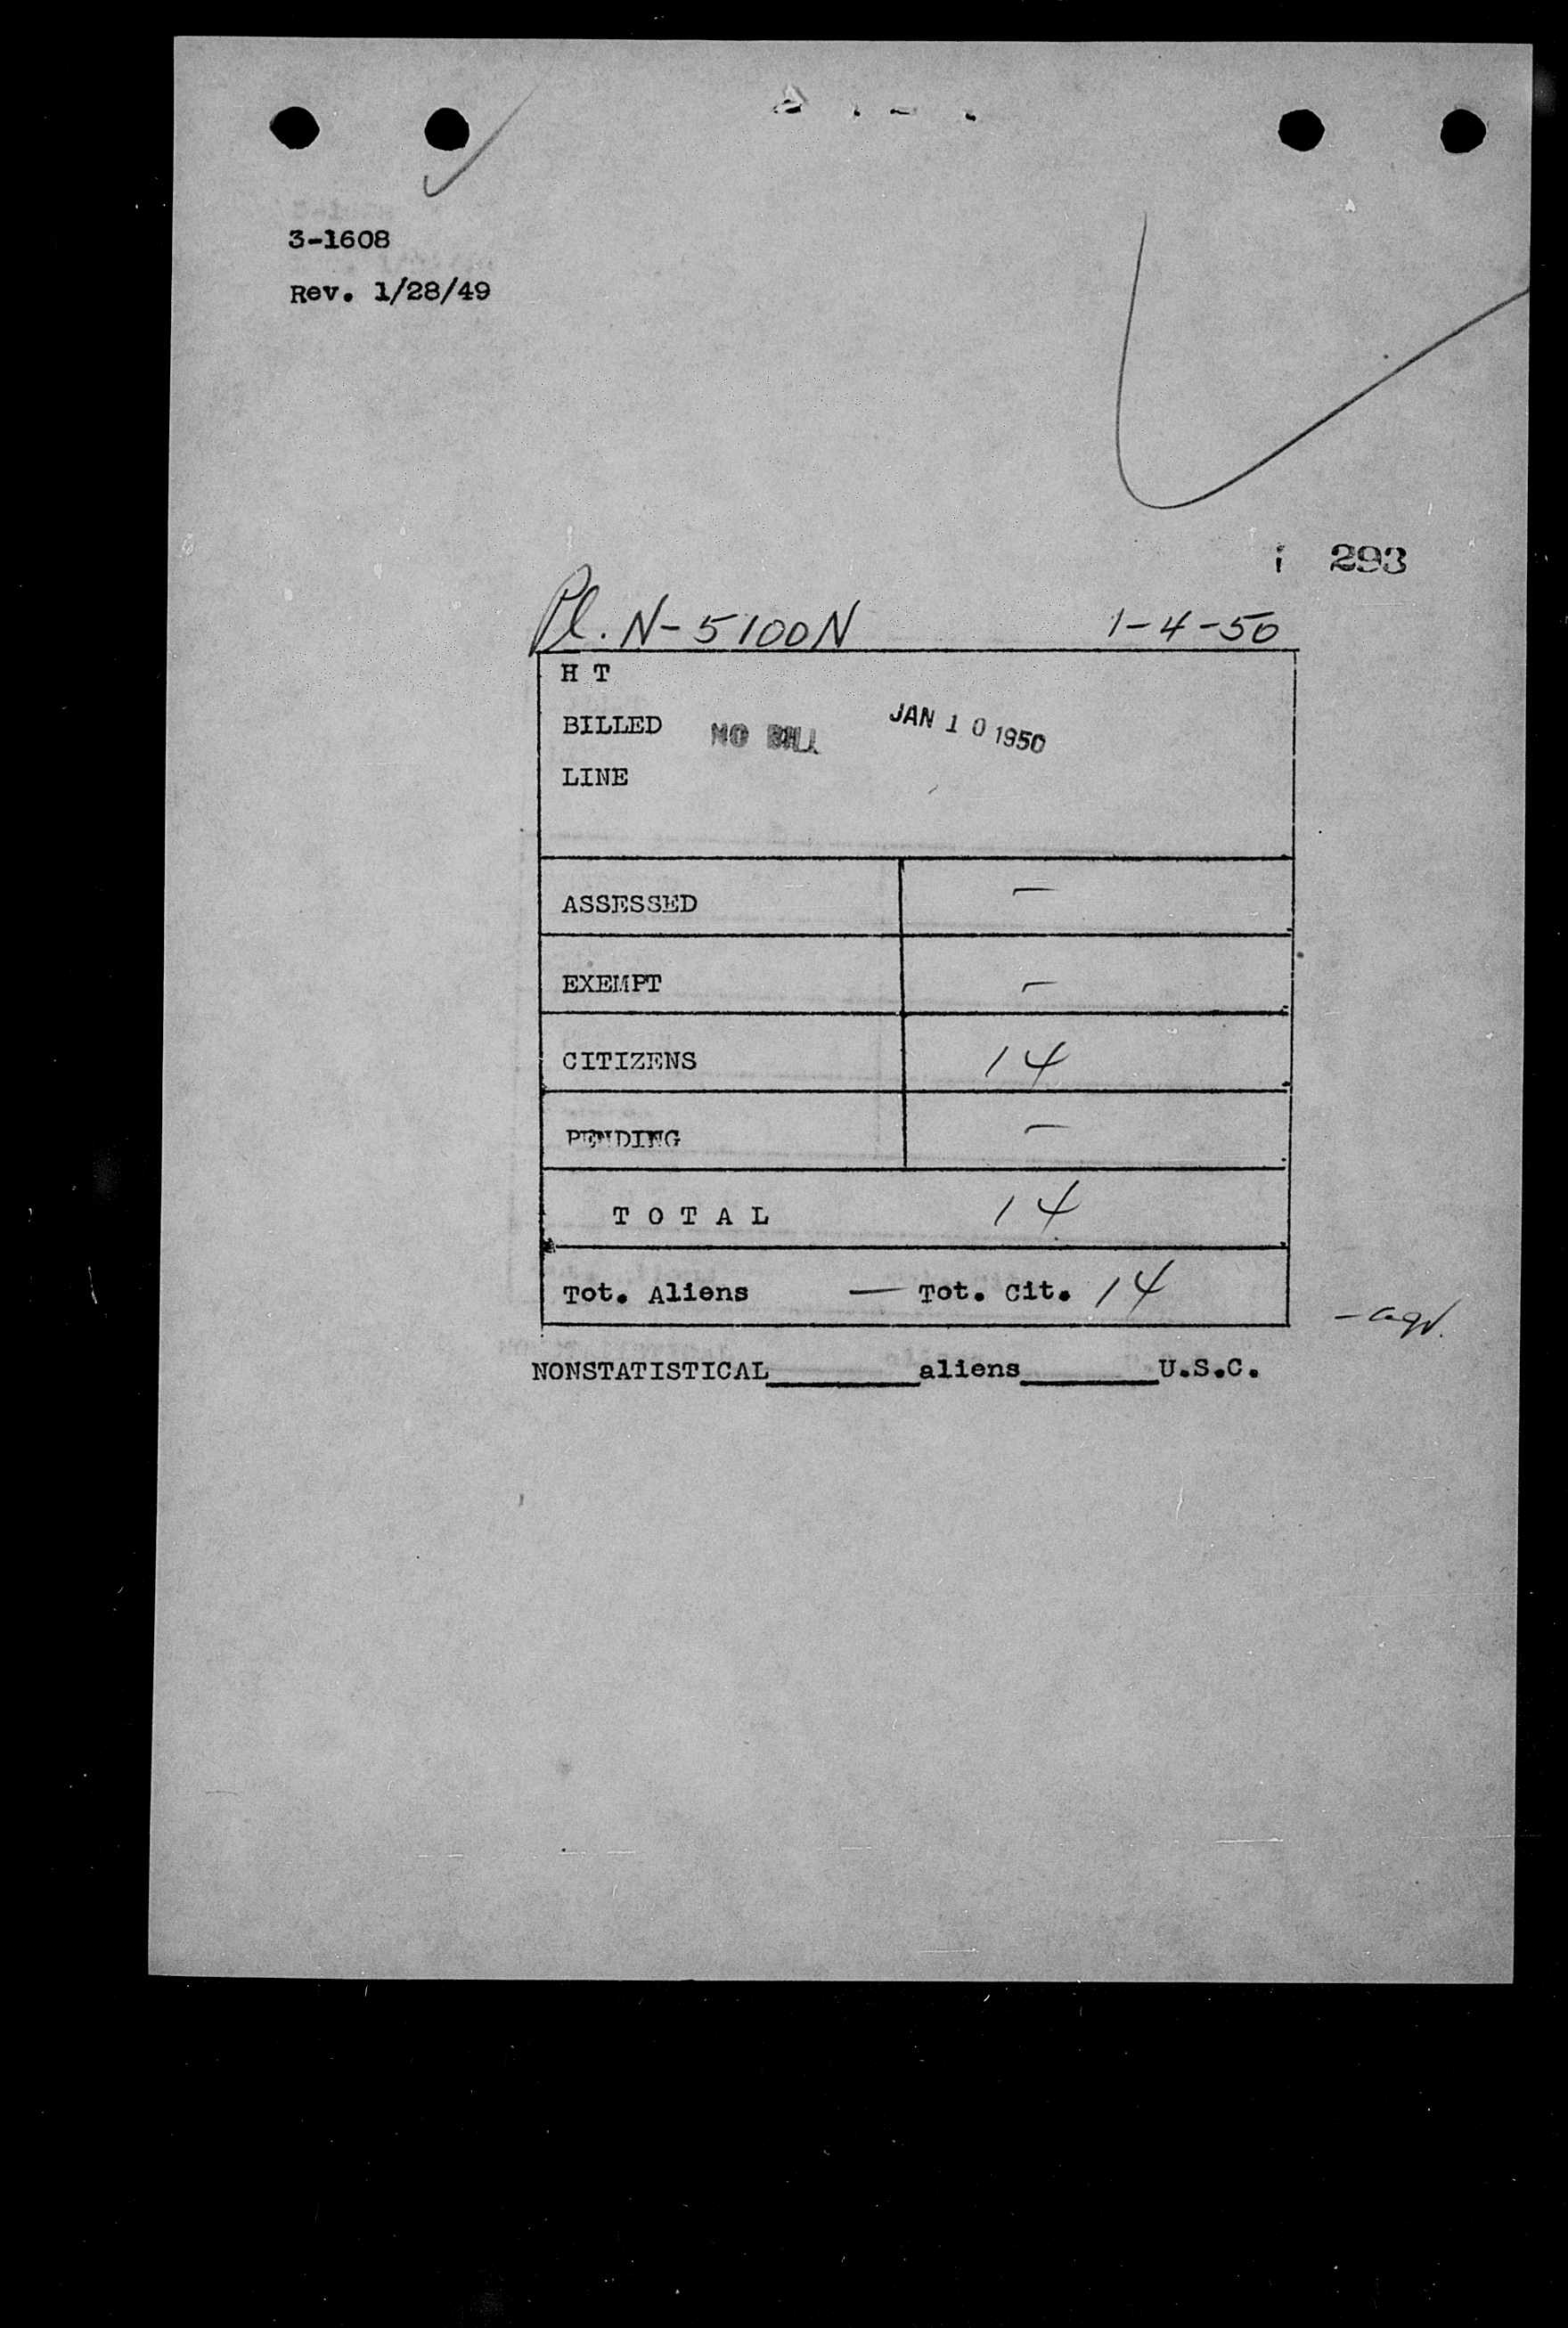 3-1608
Rev. 1/28/49
293
Pl. N-5100N 1-4-50
H T
BILLED NO BILL JAN 10 1950
LINE
ASSESSED —
EXEMPT —
CITIZENS 14
PENDING —
T O T A L 14
Tot. Aliens — Tot. Cit. 14
NONSTATISTICAL________aliens_______U.S.C.